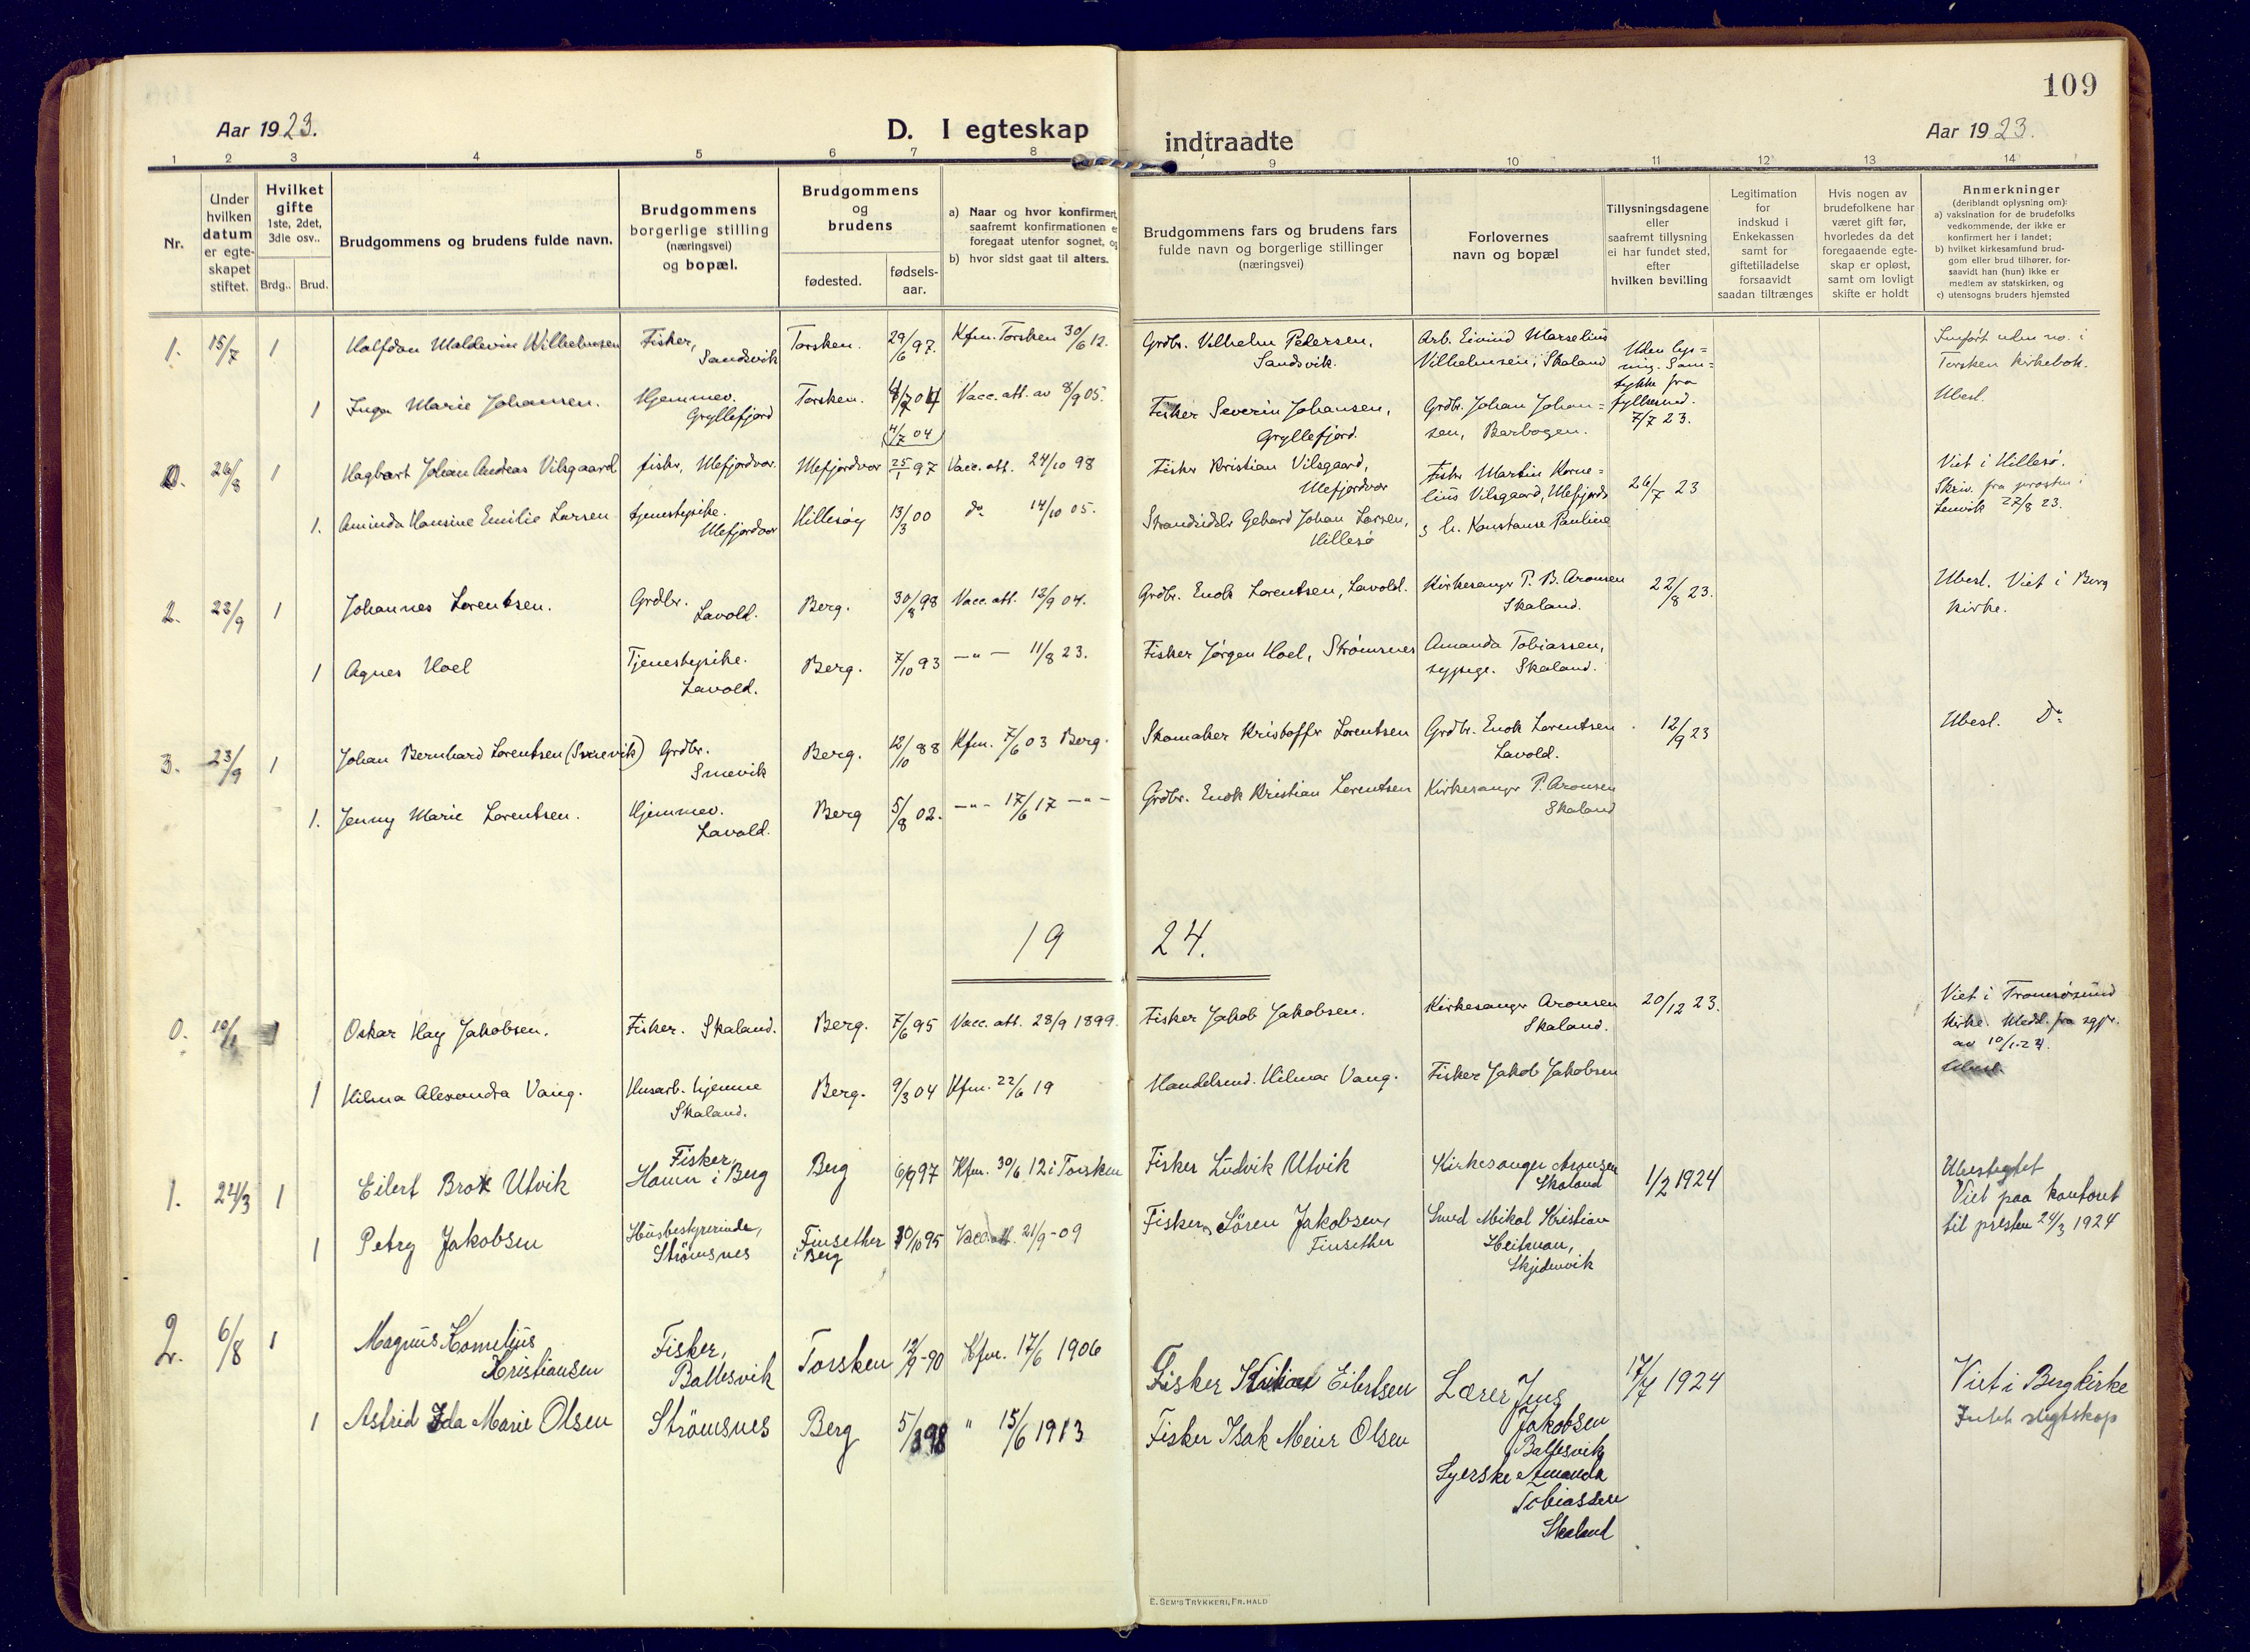 109
Aar 1923.
D. I egteskap indtraadte
Aar 1923.
1 2 3 4 5 6 7 8 9 10 11 12 13 14
Nr.
Under
hvilken
datum
er egte-
skapet
stiftet.
Hvilket
gifte
1ste, 2det,
3die osv..
Brdg..
Brud.
Brudgommens og brudens fulde navn.
Brudgommens
borgerlige stilling
(næringsvei)
og bopæl.
Brudgommens
og
brudens
fødested.
fødsels-
aar.
a) Naar og hvor konfirmert,
saafremt konfirmationen e
foregaat utenfor sognet, og
b) hvor sidst gaat til alters.
Brudgommens fars og brudens fars
fulde navn og borgerlige stillinger
(næringsvei)
Forlovernes
navn og bopæl
Tillysningsdagene
eller
saafremt tillysning
ei har fundet sted,
efter
hvilken bevilling
Legitimation
for
indskud i
Enkekassen
samt for
giftetilladelse
forsaavidt
saadan tiltrænges
Hvis nogen av
brudefolkene har
været gift før,
hvorledes da det
foregaaende egte-
skap er opløst,
samt om lovligt
skifte er holdt
Anmerkninger
(deriblandt oplysning om):
a) vaksination for de brudefolks
vedkommende, der ikke er
konfirmert her i landet;
b) hvilket kirkesamfund brud-
gom eller brud tilhører, for-
saavidt han (hun) ikke er
medlem av statskirken, og
c) utensogns bruders hjemsted
1. 15/7 1 Halfdan Maldevin Wilhelmsen
Fisker,
Sandsvik
Torsken. 29/6 97. Kfm. Torsken 30/6 12.
Grdbr. Vilhelm Pedersen,
Sandsvik.
Arb. Eivind Marselius
Vilhelmsen, Skaland
Uden lys-
ning. Sam-
tykke fra
fylkesmd.
7/7 23.
Innført uden no. i
Torsken kirkebok.
1 Inga Marie Johansen.
Hjemmev.
Gryllefjord
Torsken. 4/7 04 Vacc. att. av 8/9 05.
(4/7 04)
Fisker Severin Johansen,
Gryllefjord.
Grdbr. Johan Johan-
sen, Barbogen.
Ubesl.
0. 26/8 1 Hagbart Johan Andreas Vilsgaard
fisker, Mefjordvær.
Mefjordvær 25/1 97 Vacc. att. 24/10 98
Fisker Kristian Vilsgaard,
Mefjordvær
Fisker Martin Korne-
lius Vilsgaard, Mefjordv
26/7 23
Viet i Hillesø.
Skriv. fra prosten i
Lenvik 27/8 23.
1. Aminda Hansine Emilie Larsen
tjenestepike.
Mefjordvær
Hillesøy 13/3 00 do 14/10 05.
Strandsidder Gebard Johan Larsen,
Hillesø
g h. Konstanse Pauline
2. 23/9 1 Johannes Lorentsen.
Grdbr.
Lavold.
Berg. 30/8 98 Vacc. att. 12/9 04.
Grdbr. Enok Lorentsen, Lavold.
Kirkesanger P. B. Aronsen
Skaland.
22/8 23.
Ubesl. Viet i Berg
kirke.
1 Agnes Hoel
Tjenestepike.
Lavold.
Berg. 7/10 93 — " — 11/8 23.
Fisker Jørgen Hoel, Strømsnes
Amanda Tobiassen,
sypige. Skaland.
3. 23/9 1 Johan Bernhard Lorentsen (Smevik)
Grdbr.
Smevik
Berg. 12/10 88 Kfm. 7/6 03 Berg.
Skomaker Kristoffer Lorentsen
Grdbr. Enok Lorentsen
Lavold.
12/9 23
Ubesl. Do
1. Jenny Marie Lorentsen.
Hjemmev.
Lavold.
Berg 5/8 02. — " — 17/6 17 — " —
Grdbr. Enok Kristian Lorentsen
Kirkesanger P. Aronsen
Skaland
1924.
0. 10/1 1 Oskar Hag Jakobsen.
Fisker. Skaland.
Berg. 7/6 95 Vacc. att. 28/9 1899.
Fisker Jakob Jakobsen.
Kirkesanger Aronsen
Skaland.
20/12 23.
Viet i Tromsøsund
kirke. Medd. fra sgpr.
av 10/1-24.
Ubesl.
1 Hilma Alexandra Vang.
Husarb. hjemme
Skaland.
Berg. 9/3 04 Kfm. 22/6 19
Handelsmd. Hilmar Vang.
Fisker Jakob Jakobsen
1. 24/3 1 Eilert Brox Utvik
Fisker,
Hamn i Berg
Berg 6/9 97 Kfm. 30/6 12 i Torsken
Fisker Ludvik Utvik
Kirkesanger Aronsen
Skaland
1/2 1924
Ubeslegtet
Viet paa kontoret
til presten 24/3 1924
1 Petry Jakobsen
Husbestyrerinde,
Strömsnes
Finsether
i Berg
30/10 95 Vacc. att. 21/9-09
Fisker Sören Jakobsen,
Finsether
Smed Mikal Kristian
Heitman,
Skjedenvik
2. 6/8 1 Magnus Kornelius
Kristiansen
Fisker,
Ballesvik
Torsken 12/9-90 Kfm. 17/6 1906
Fisker Eilertsen
Lærer Jens
Jakobsen
Ballesvik
17/7 1924
Viet i Berg kirke
Intet slegtskap
1 Astrid Ida Marie Olsen
Strömsnes
Berg 5/3 98 " 15/6 1913
Fisker Isak Meier Olsen
Syerske Amanda
Tobiassen
Skaland
E. SEM'S TRYKKERI, FR. HALD